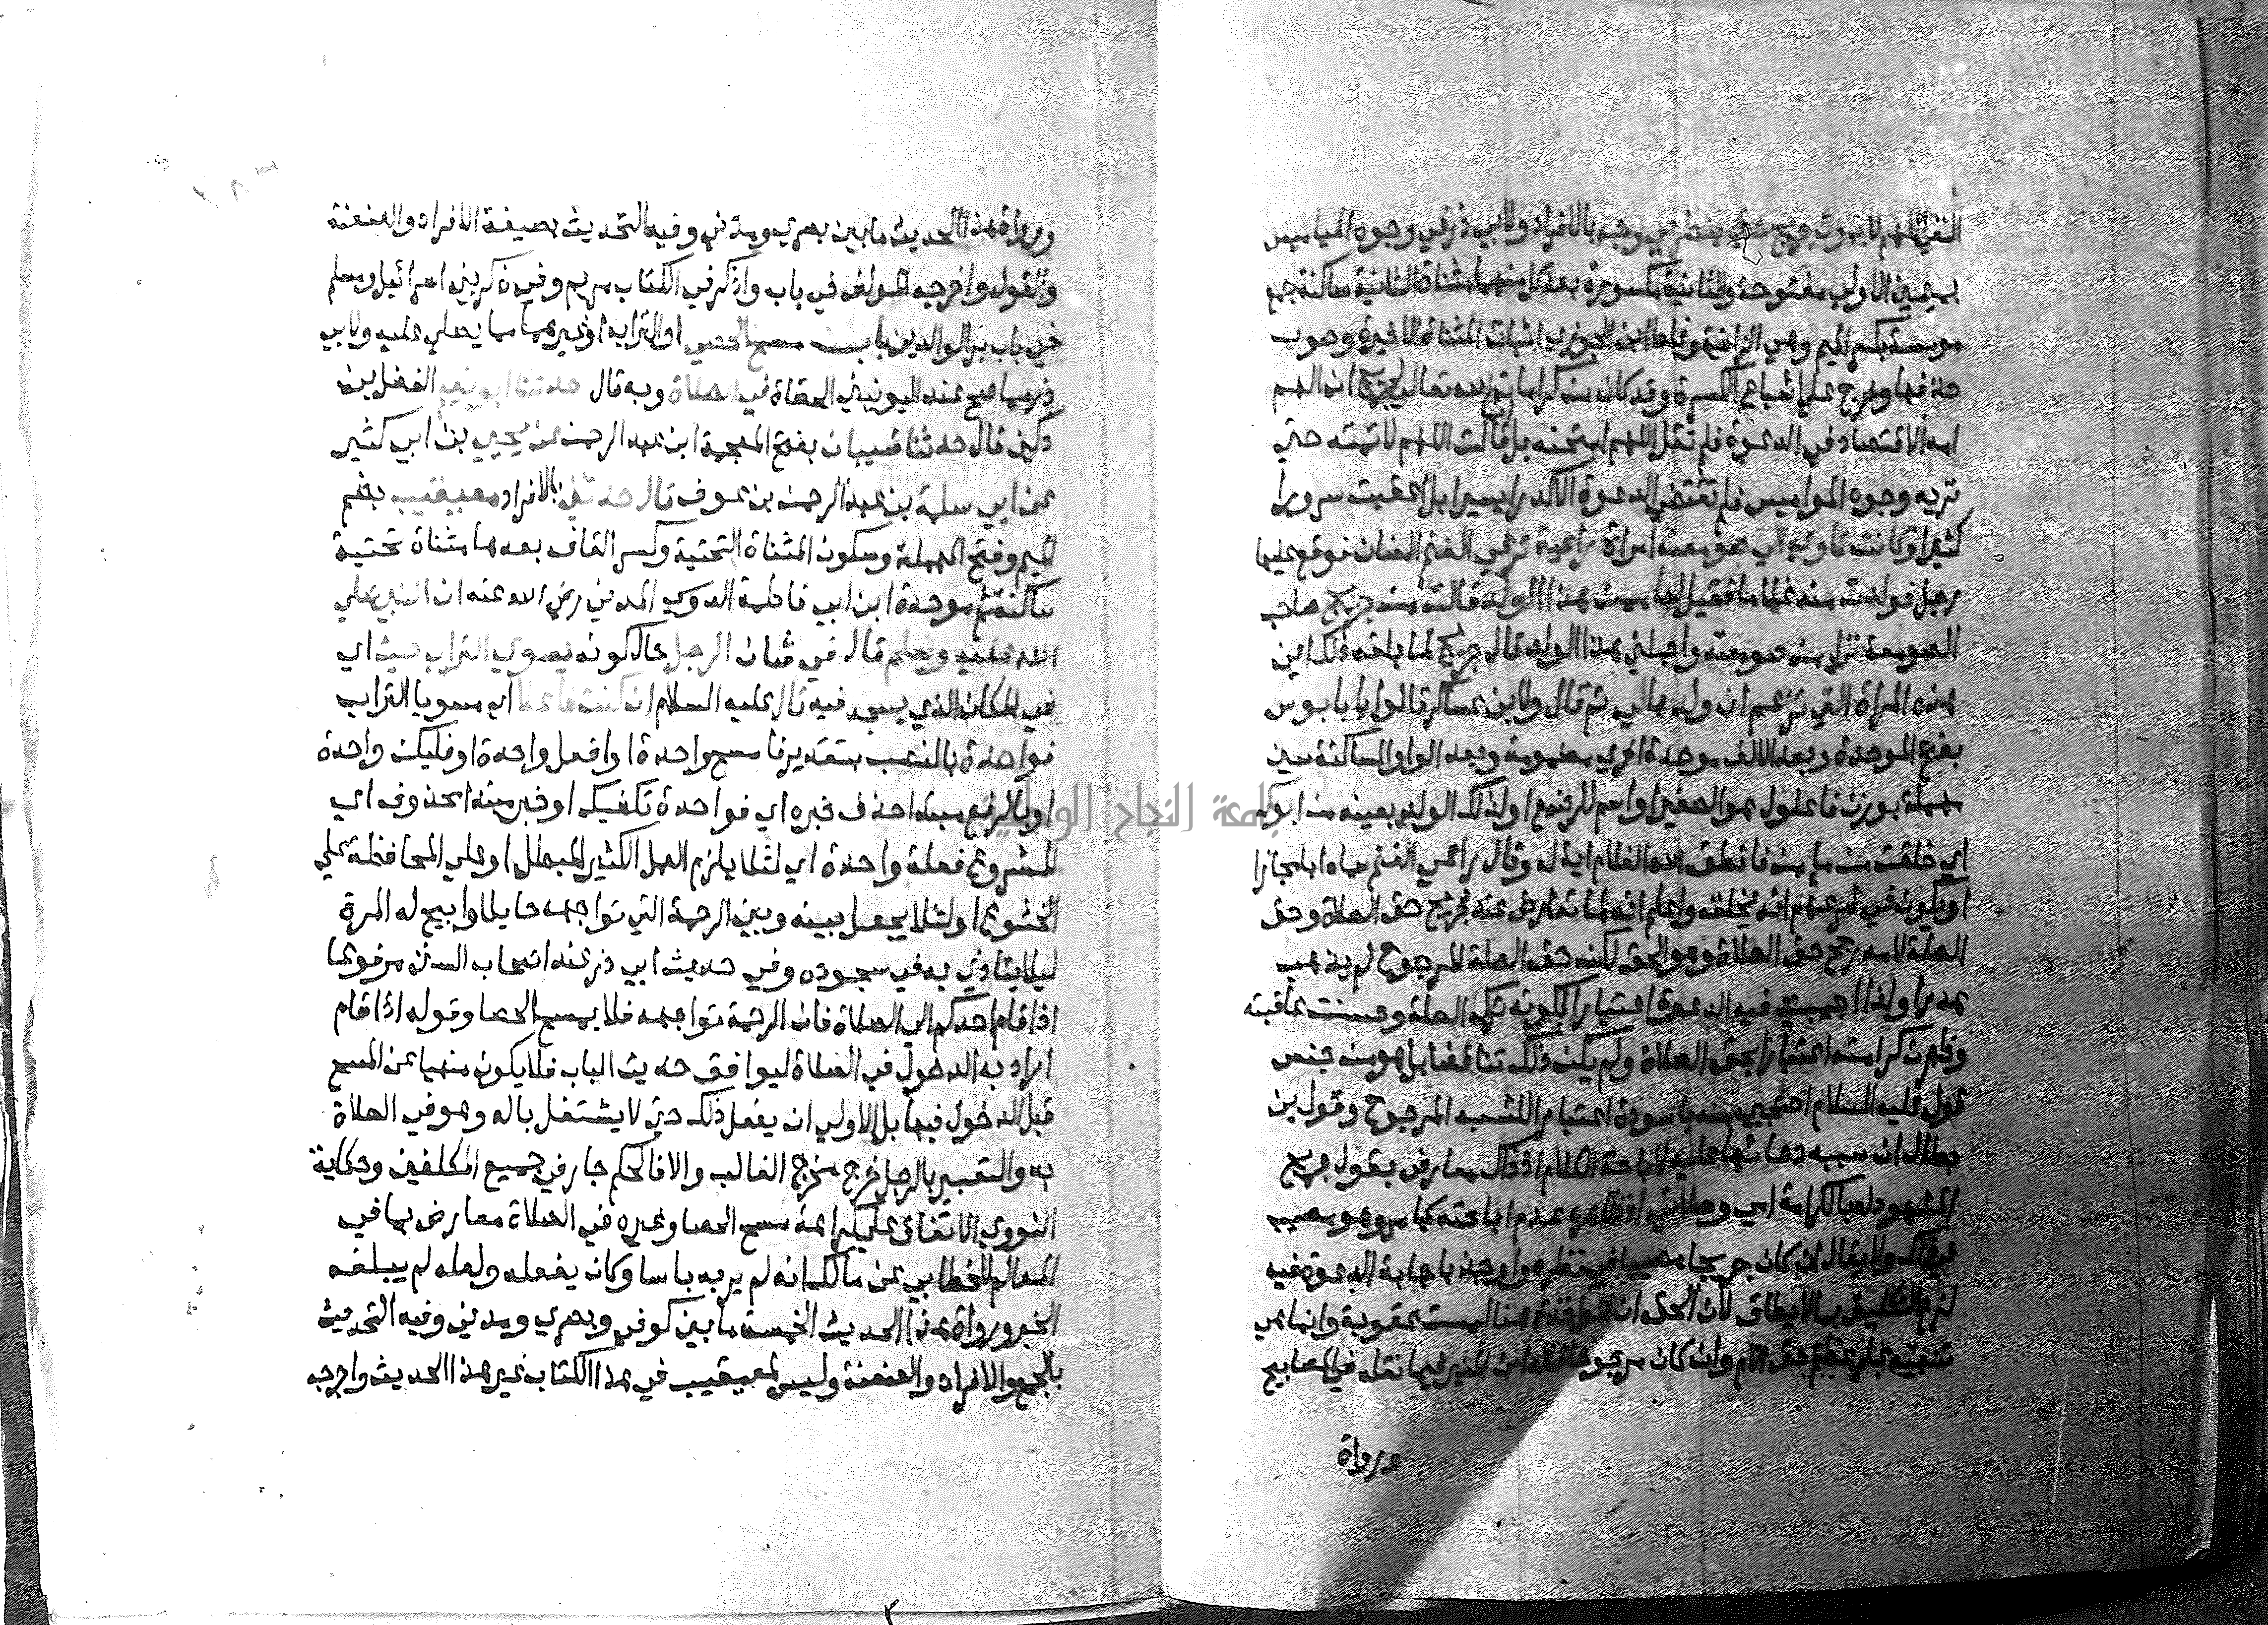 التقي اللهم لا يموت جريج حتى ينظر في وجه بالافراد ولابي ذر في وجوه المياميس
بميمين الاولي مفتوحة والثانية مكسورة بعد كل منهما مثناة الثانية ساكنة جمع
مومسة بكسر الميم وهي الزانية وغلط ابن الجوزي اثبات المثناة الاخيرة وصوب
حذفها وخرج علي اشباع الكسرة وقد كان من كرامة الله تعالي لجريج ان الهم
امه الاقتصاد في الدعوة فلم تقل اللهم امتحنه بل قالت اللهم لا تمته حتي
تريه وجوه المواميس فلم تقتض الدعوة الا كدرا يسيرا بل اعقبت سرورا
كثيرا وكانت تاوي الي صومعته امراة راعية ترعي الغنم الضان فوقع عليها
رجل فولدت منه غلاما فقيل لها ممن هذا الولد قالت من جريج صاحب
الصومعة نزل من صومعته واحبلني هذا الولد قال جريج لما بلغه ذلك اين
هذه المراة التي تزعم ان ولدها لي ثم قال ولابن عساكر قالوا يا بابوس
بفتح الموحدة وبعد الالف موحدة اخري مضمومة وبعد الواو الساكنة سين
مهملة بوزن فاعول هو الصغير او اسم للرضيع او لذلك الولد بعينه من ابوك
اي خلقت من ماء من فانطق الله الغلام اية له وقال راعي الغنم سماه ابا مجازا
او يكون في شرعهم انه يلحقه واعلم انه لما تعارض عند جريج حق الصلاة وحق
الصلة لامه رجح حق الصلاة وهو الحق لكنه حق الصلة المرجوح لم يذهب
هدرا ولذا اجيبت فيه الدعوة اعتبارا لكونه ترك الصلة وحسنت عاقبته
وظهرت كرامته اعتبارا بحق الصلاة ولم يكن ذلك تناقضا بل هو من جنس
قوله عليه السلام احتجبي منه يا سودة اعتبارا للشبه المرجوح وقول بن
بطال ان سببه دعائها عليه لاباحة الكلام اذ ذاك معارض بقول جريج
المشهود له بالكرامة امي وصلاتي اذ ظاهره عدم اباحته كما مر وهو مصيب
في ذلك ولا يقال ان كان جريجا مصيبا في نظره واوخذ باجابة الدعوة فيه
لزم التكليف بما لا يطاق لان الحق ان المواخذة هنا ليست عقوبة وانما هي
تنبيه علي عظم حق الام وان كان مرجوحا قاله ابن المنير فيما نقله في المصابيح
ورواة
ورواة هذا الحديث ما بين بصري ومدني وفيه التحديث بصيغة الافراد والعنعنة
والقول واخرجه المولف في باب واذكر في الكتاب مريم وفي ذكر بني اسرائيل ومسلم
في باب بر الوالدين باب مسح الحصي او التراب او غيرهما مما يصلي عليه ولابي
ذر مما صح عند اليونيني الحصاة في الصلاة وبه قال حدثنا ابو نعيم الفضل بن
دكين قال حدثنا شيبان بفتح المعجمة ابن عبد الرحمن عن يحيي بن ابي كثير
عن ابي سلمة بن عبد الرحمن بن عوف قال حدثني بالافراد معيقيب بضم
الميم وفتح المهملة وسكون المثناة التحتية وكسر القاف بعدها مثناة تحتية
ساكنة ثم موحدة ابن ابي فاطمة الدوسي المدني رضي الله عنه ان النبي صلي
الله عليه وسلم قال في شان الرجل حال كونه يسوي التراب حيث اي
في المكان الذي يسجد فيه قال عليه السلام ان كنت فاعلا اي مسويا التراب
فواحدة بالنصب بتقدير فامسح واحدة او افعل واحدة او فليكن واحدة
او بالرفع مبتدا حذف خبره اي فواحدة تكفيك او خبر مبتدا محذوف اي
المشروع فعلة واحدة اي لئلا يلزم العمل الكثير المبطل او علي المحافظة علي
الخشوع او لئلا يجعل بينه وبين الرحمة التي تواجهه حايلا وابيح له المرة
ليلا يتاذي به في سجوده وفي حديث ابي ذر عند اصحاب السنن مرفوعا
اذا قام احدكم الي الصلاة فان الرحمة تواجهه فلا يمسح الحصا وقوله اذا قام
اراد به الدخول في الصلاة ليوافق حديث الباب فلا يكون منهيا عن المسح
قبل الدخول فيها بل الاولي ان يفعل ذلك حتي لا يشتغل باله وهو في الصلاة
به والتعبير بالرجل خرج مخرج الغالب والا فالحكم جار في جميع المكلفين وحكاية
النووي الاتفاق علي كراهة مسح الحصا وغيره في الصلاة معارض بما في
المعالم للخطابي عن مالك انه لم ير به باسا وكان يفعله ولعله لم يبلغه
الخبر ورواة هذا الحديث الخمسة ما بين كوفي وبصري ومدني وفيه التحديث
بالجمع والافراد والعنعنة وليس لمعيقيب في هذا الكتاب غير هذا الحديث واخرجه
جامعة النجاح الوطنية